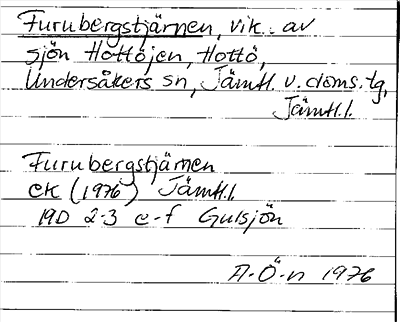 Furubergstjärnen, vik av
sjön Hottöjen, Hottö,
Undersåkers sn, Jämtl. v. doms. tg,
Jämtl. l.
Furubergstjärnen
EK (1976) Jämtl. l.
19D 2-3 e-f Gulsjön
A. Ö-n 1976